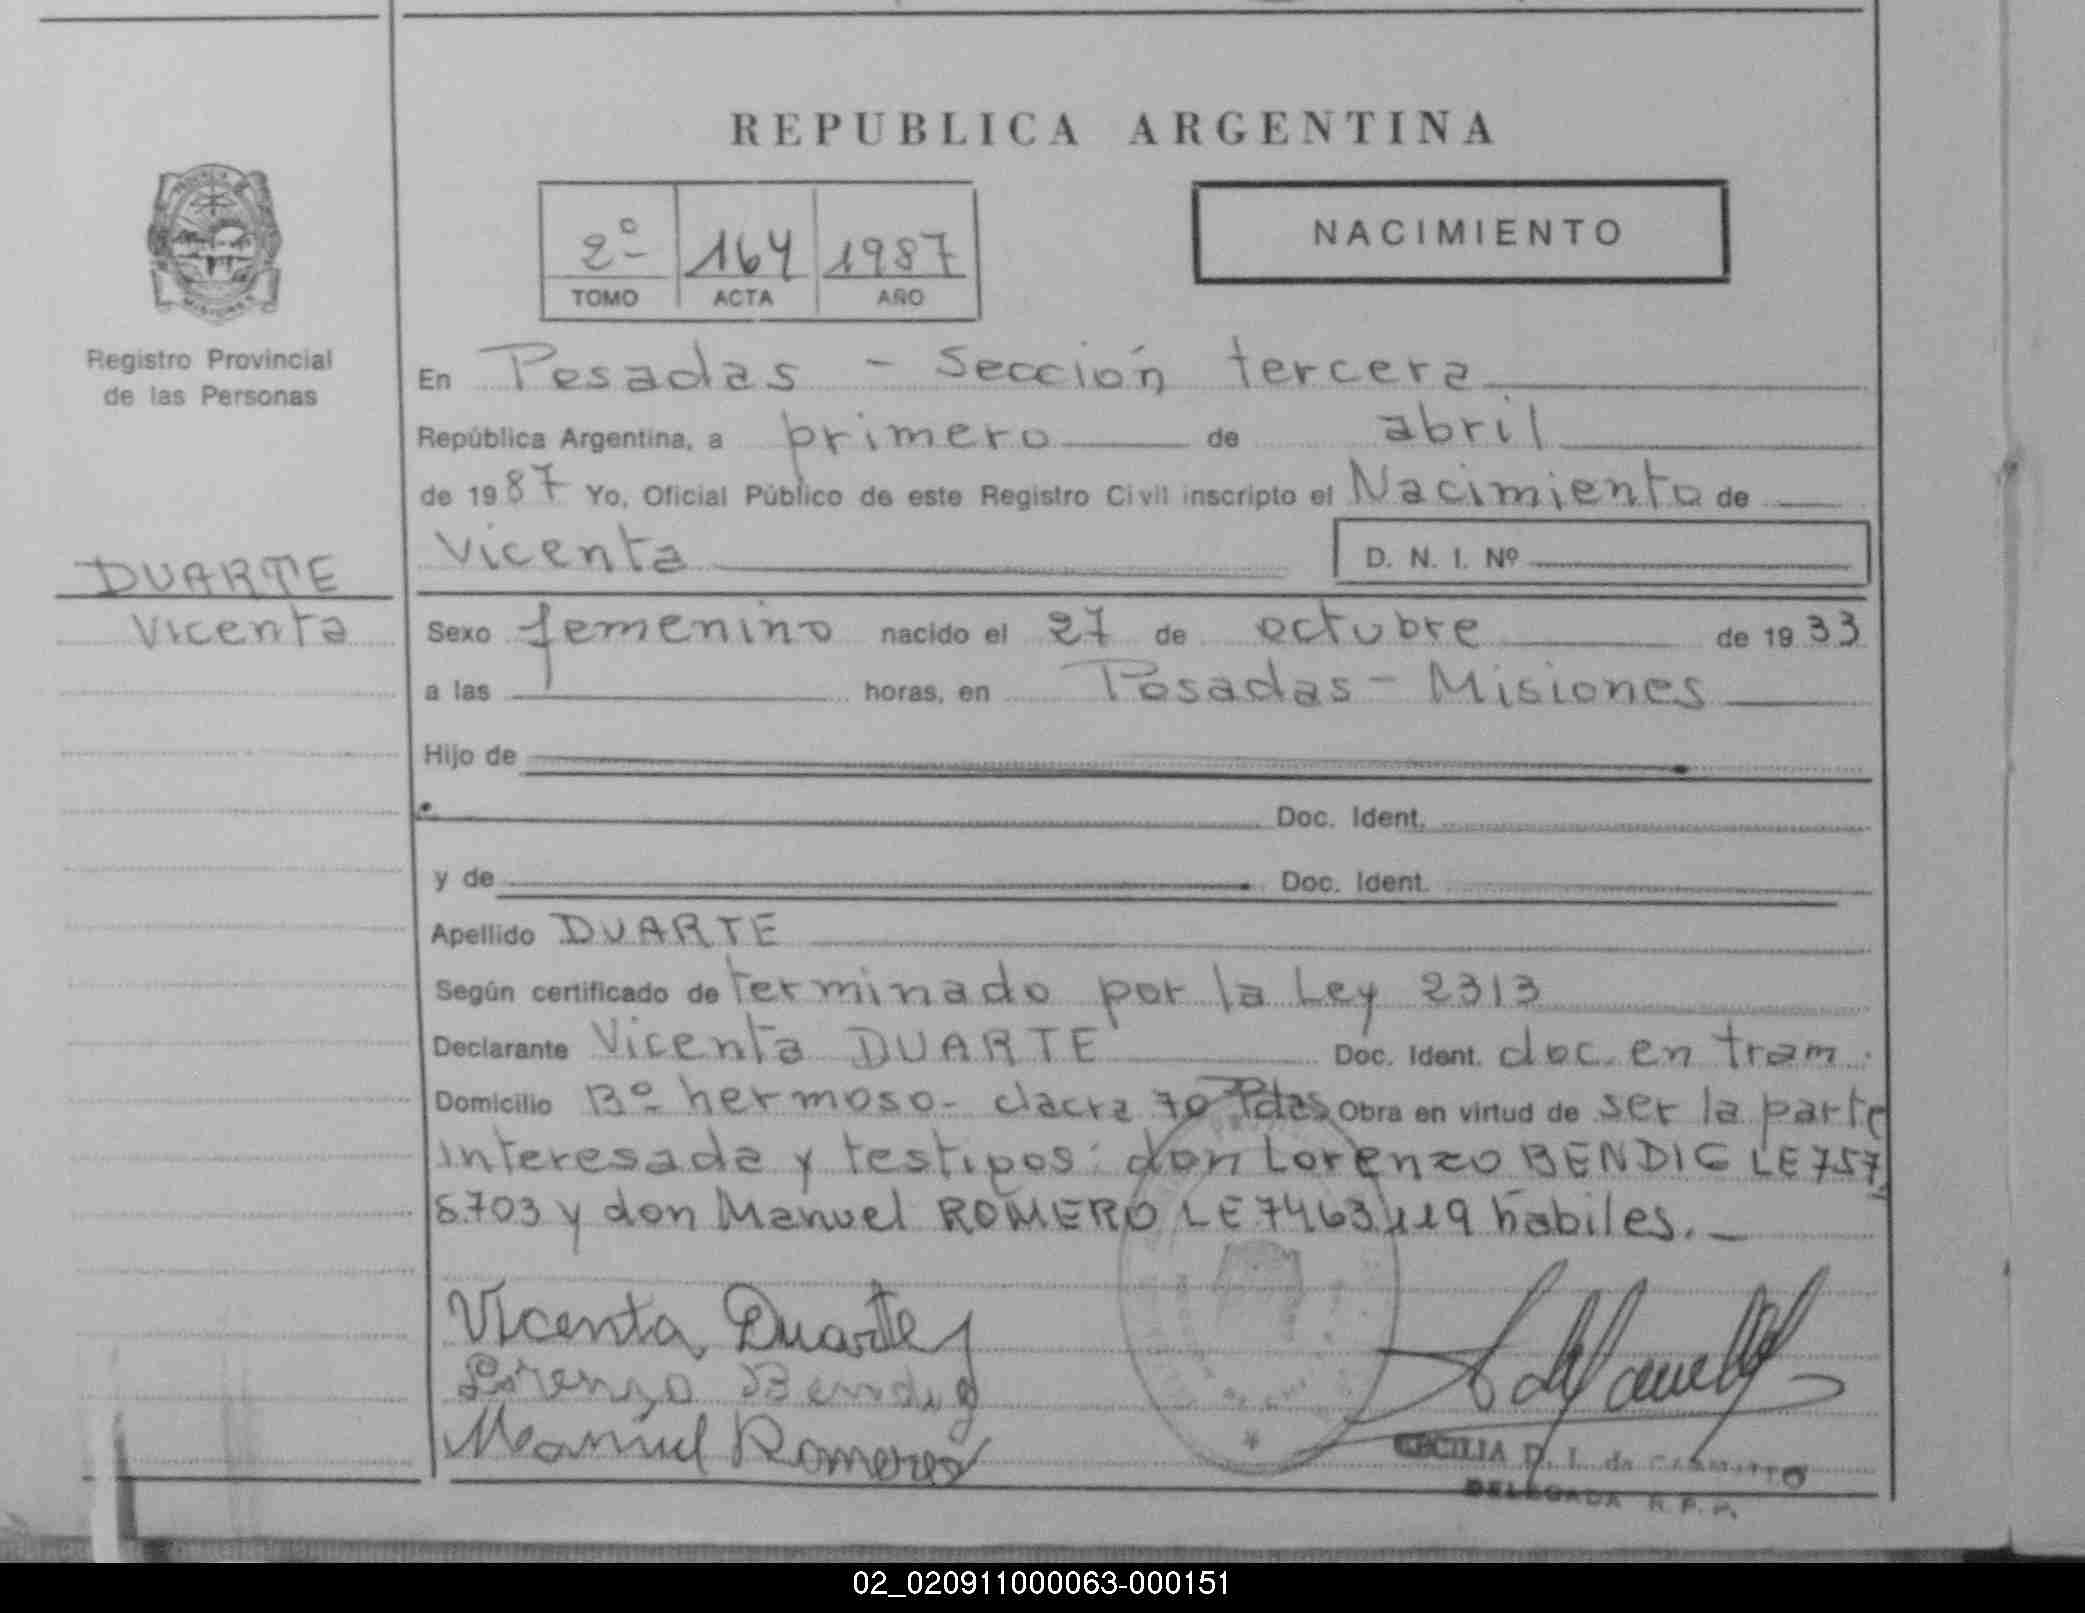 REPUBLICA ARGENTINA
2º 164 1987
TOMO ACTA AÑO
NACIMIENTO
Registro Provincial
de las Personas
DUARTE
Vicenta
En Posadas - Sección tercera
República Argentina, a primero de abril
de 1987 Yo, Oficial Público de este Registro Civil inscripto el Nacimiento de
Vicenta D. N. I. Nº
Sexo femenino nacido el 27 de octubre de 1933
a las horas, en Posadas - Misiones
Hijo de
Doc. Ident.
y de Doc. Ident.
Apellido DUARTE
Según certificado de terminado por la Ley 2313
Declarante Vicenta DUARTE Doc. Ident. doc. en tram.
Domicilio Bº hermoso - chacra 70 Pdas Obra en virtud de ser la parte
interesada y testigos: don Lorenzo BENDIG LE 757
5.703 y don Manuel ROMERO LE 7463119 hábiles.
Vicenta Duarte
Lorenzo Bendig
Manuel Romero
CECILIA D. I. de
DELEGADA R. P. P.
02_020911000063-000151